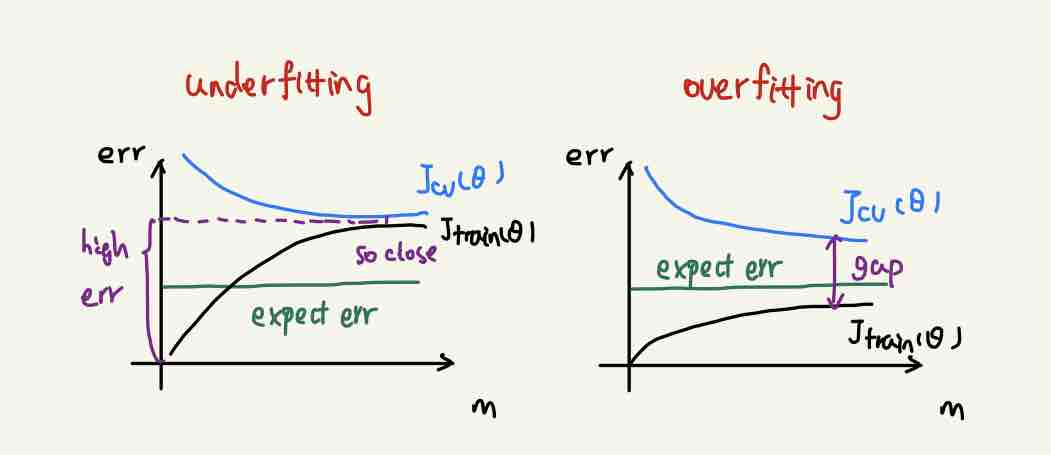 underfitting
err
Jcv(θ)
Jtrain(θ)
high
err
so close
expect err
m
overfitting
err
Jcv(θ)
expect err
gap
Jtrain(θ)
m